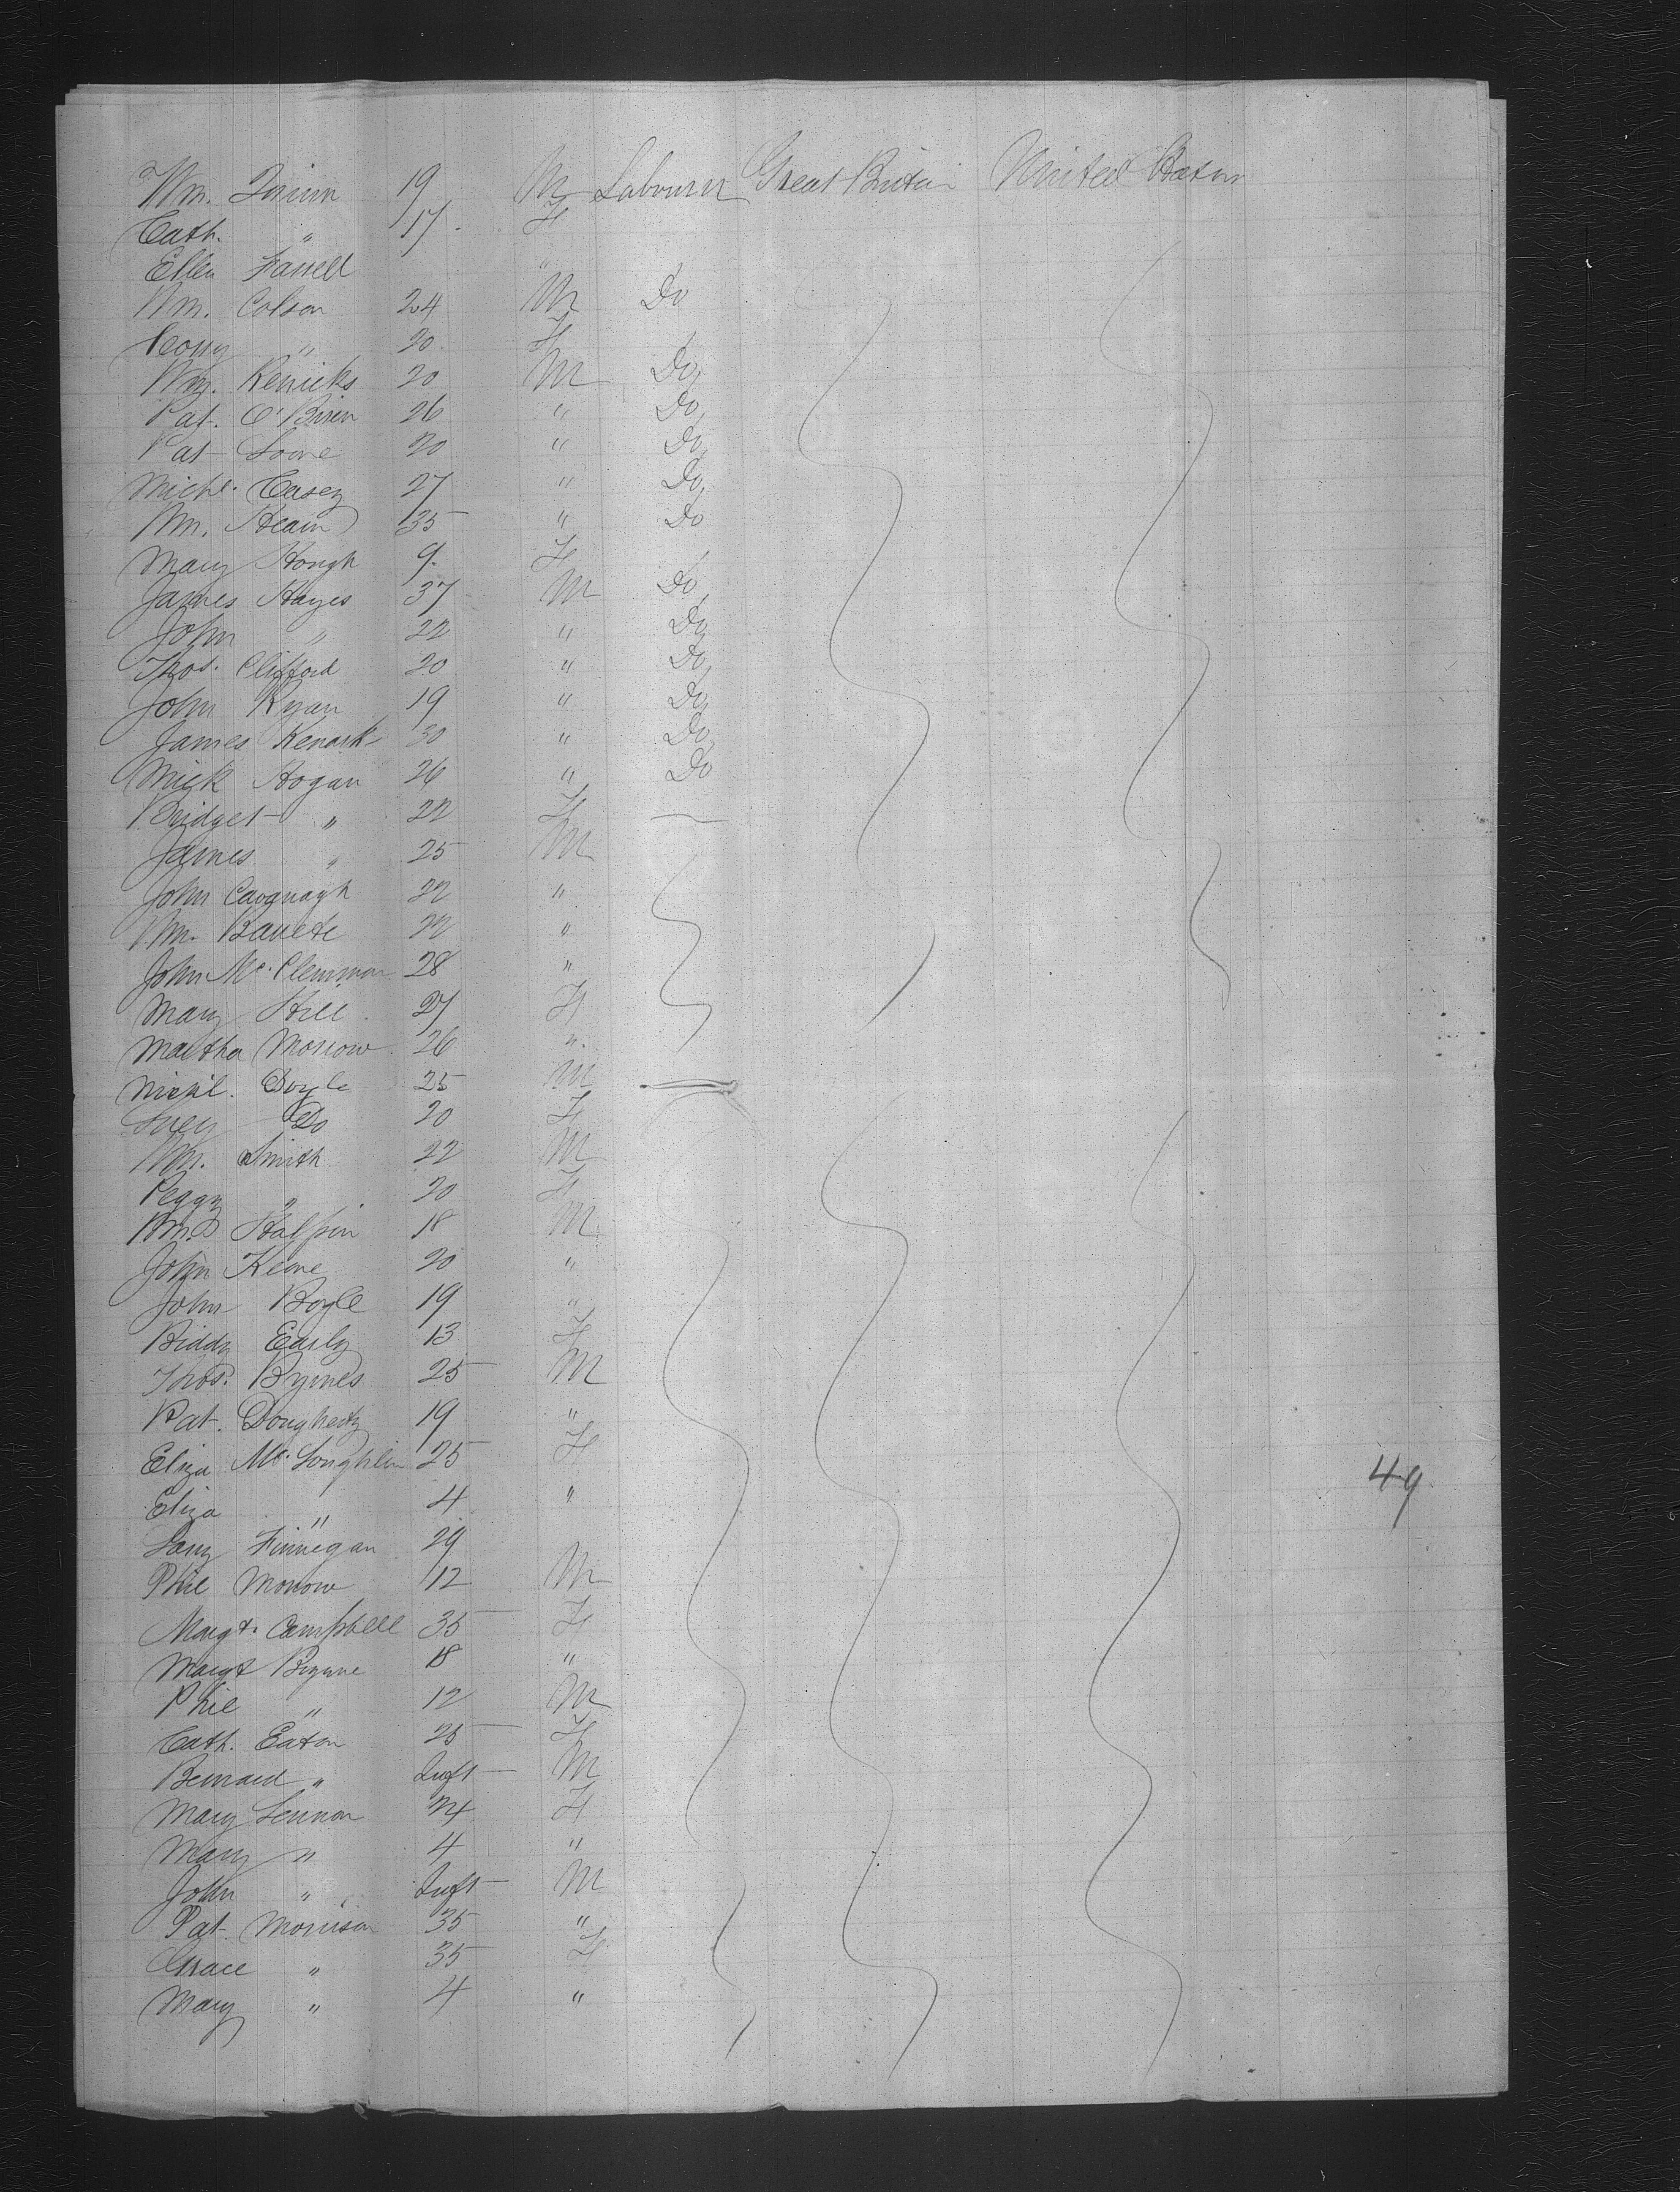 Wm. Quinn 19 M Labourer Great Britain United States
Cath. " 17 F
Ellen Farrell "
Wm. Colson 24 M Do
" 20 F
Wm. Renicks 20 M Do
Pat. O'Brien 26 " Do
Pat Loone 20 " Do
Michl. Casey 27 " Do
Wm. Heain 35 " Do
Mary Hough 9 F
James Hayes 37 M Do
John " 22 " Do
Thos. Clifford 20 " Do
John Ryan 19 " Do
James Kenark 30 " Do
Mick Hogan 26 " Do
Bridget " 22 F —
James " 25 M
John Cavgnagh 22 "
Wm. 22 "
John Mc. Clemmon 28 "
Mary Hill 27 F
Martha Morrow 26 "
Michl. Doyle 25 M
Lucy Do 20 F
Wm. Smith 22 M
Peggy " 20 F
Wm. Halpin 18 M
John Keane 20 "
John Boyle 19 "
Biddy Early 13 F
Thos. Byrnes 25 M
Pat. Dougherty 19 "
Eliza Mc. Loughlin 25 F
Eliza " 4 "
49
Finnegan 29
Phil Morrow 12 M
Margt. Campbell 35 F
Margt Byrne 18 "
Phil " 12 M
Cath. Eaton 25 F
Bernard " Inft M
Mary Lennon 24 F
Mary " 4 "
John " Inft M
Pat. Morrison 35 "
Grace " 35 F
Mary " 4 "